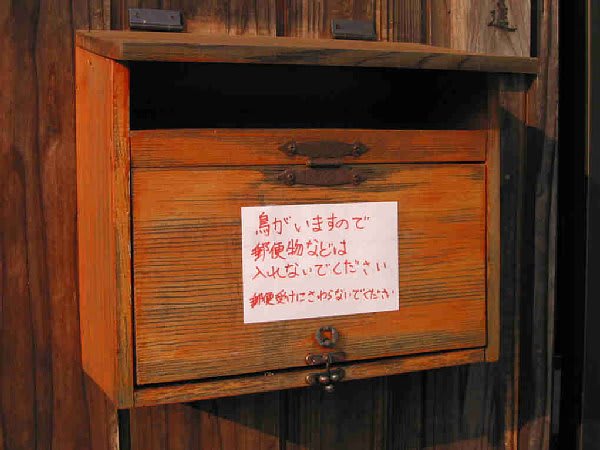 鳥がいますので
郵便物などは
入れないでください
郵便受けにさわらないでください